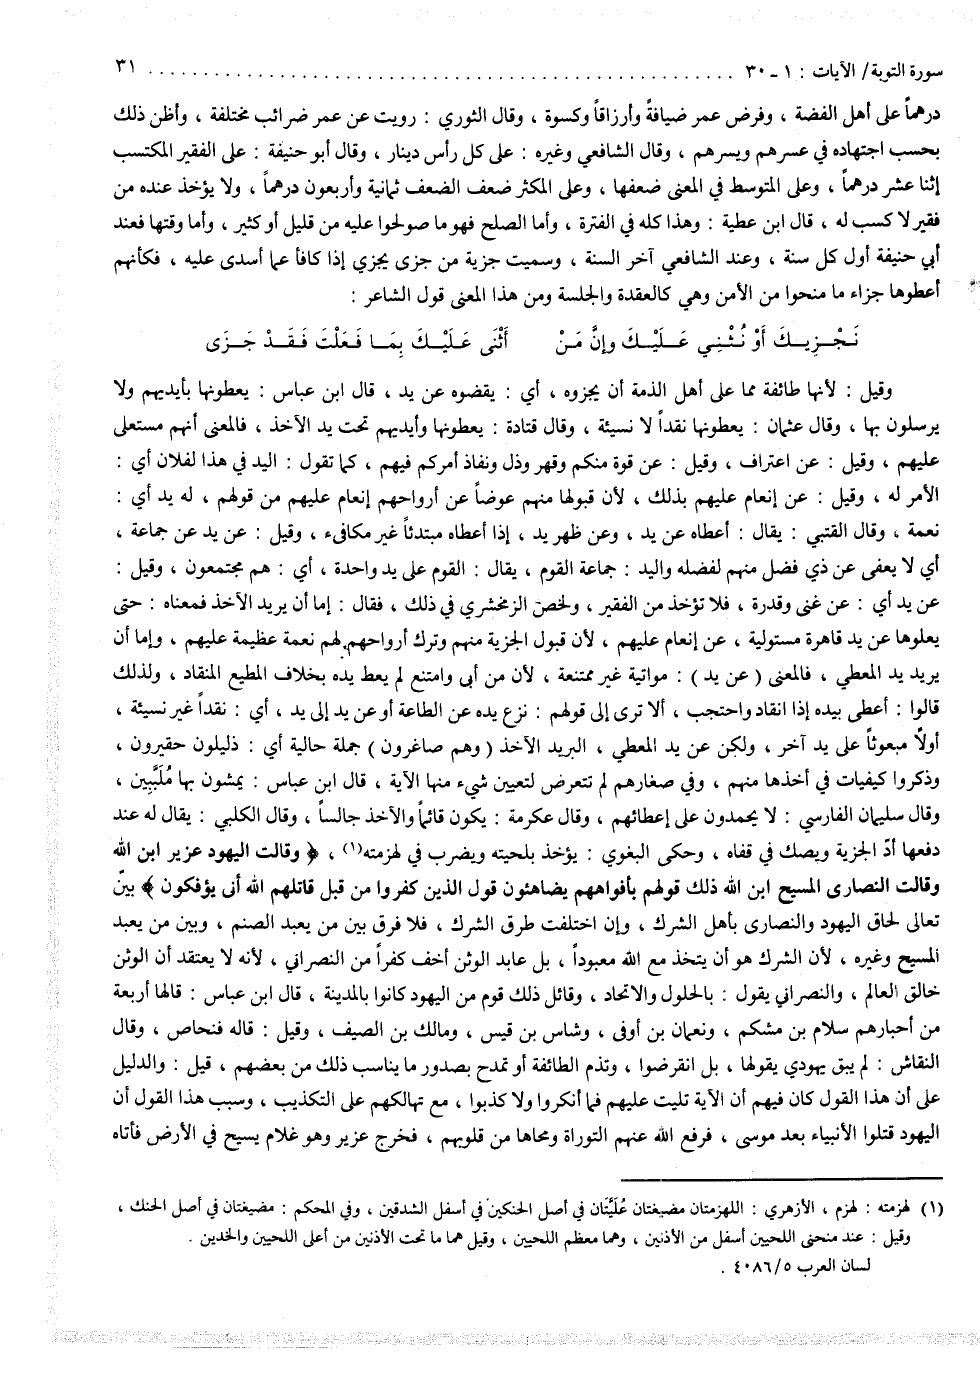 سورة التوبة/ الآيات : ١ ـ ٣٠ ......................................................... ٣١
درهماً على أهل الفضة ، وفرض عمر ضيافةً وأرزاقاً وكسوة ، وقال الثوري : رويت عن عمر ضرائب مختلفة ، وأظن ذلك
بحسب اجتهاده في عسرهم ويسرهم ، وقال الشافعي وغيره : على كل رأس دينار ، وقال أبو حنيفة : على الفقير المكتسب
إثنا عشر درهماً ، وعلى المتوسط في المعنى ضعفها ، وعلى المكثر ضعف الضعف ثمانية وأربعون درهماً ، ولا يؤخذ عنده من
فقير لا كسب له ، قال ابن عطية : وهذا كله في الفترة ، وأما الصلح فهو ما صولحوا عليه من قليل أو كثير ، وأما وقتها فعند
أبي حنيفة أول كل سنة ، وعند الشافعي آخر السنة ، وسميت جزية من جزى يجزي إذا كافأ عما أسدى عليه ، فكأنهم
أعطوها جزاء ما منحوا من الأمن وهي كالعقدة والجلسة ومن هذا المعنى قول الشاعر :
نَجْـزِيـكَ أَوْ نُـثْـنِـي عَـلَيْـكَ وإِنَّ مَـنْ أَثْنَى عَـلَيْـكَ بِمَـا فَـعَلْتَ فَـقَـدْ جَـزَى
وقيل : لأنها طائفة مما على أهل الذمة أن يجزوه ، أي : يقضوه عن يد ، قال ابن عباس : يعطونها بأيديهم ولا
يرسلون بها ، وقال عثمان : يعطونها نقداً لا نسيئة ، وقال قتادة : يعطونها وأيديهم تحت يد الآخذ ، فالمعنى أنهم مستعلى
عليهم ، وقيل : عن اعتراف ، وقيل : عن قوة منكم وقهر وذل ونفاذ أمركم فيهم ، كما تقول : اليد في هذا لفلان أي :
الأمر له ، وقيل : عن إنعام عليهم بذلك ، لأن قبولها منهم عوضاً عن أرواحهم إنعام عليهم من قولهم ، له يد أي :
نعمة ، وقال القتبي : يقال : أعطاه عن يد ، وعن ظهر يد ، إذا أعطاه مبتدئاً غير مكافىء ، وقيل : عن يد عن جماعة ،
أي لا يعفى عن ذي فضل منهم لفضله واليد : جماعة القوم ، يقال : القوم على يد واحدة ، أي : هم مجتمعون ، وقيل :
عن يد أي : عن غنى وقدرة ، فلا تؤخذ من الفقير ، ولخص الزمخشري في ذلك ، فقال : إما أن يريد الآخذ فمعناه : حتى
يعلوها عن يد قاهرة مستولية ، عن إنعام عليهم ، لأن قبول الجزية منهم وترك أرواحهم لهم نعمة عظيمة عليهم ، وإما أن
يريد يد المعطي ، فالمعنى ( عن يد ) : مواتية غير ممتنعة ، لأن من أبى وامتنع لم يعط يده بخلاف المطيع المنقاد ، ولذلك
قالوا : أعطى بيده إذا انقاد واحتجب ، ألا ترى إلى قولهم : نزع يده عن الطاعة أو عن يد إلى يد ، أي : نقداً غير نسيئة ،
أولاً مبعوثاً على يد آخر ، ولكن عن يد المعطي ، البريد الآخذ ( وهم صاغرون ) جملة حالية أي : ذليلون حقيرون ،
وذكروا كيفيات في أخذها منهم ، وفي صغارهم لم تتعرض لتعيين شيء منها الآية ، قال ابن عباس : يمشون بها مُلَبَّبِين ،
وقال سليمان الفارسي : لا يحمدون على إعطائهم ، وقال عكرمة : يكون قائماً والآخذ جالساً ، وقال الكلبي : يقال له عند
دفعها أدّ الجزية ويصك في قفاه ، وحكى البغوي : يؤخذ بلحيته ويضرب في لهزمته(١) ، ﴿ وقالت اليهود عزير ابن الله
وقالت النصارى المسيح ابن الله ذلك قولهم بأفواههم يضاهئون قول الذين كفروا من قبل قاتلهم الله أنى يؤفكون ﴾ بيّن
تعالى لحاق اليهود والنصارى بأهل الشرك ، وإن اختلفت طرق الشرك ، فلا فرق بين من يعبد الصنم ، وبين من يعبد
المسيح وغيره ، لأن الشرك هو أن يتخذ مع الله معبوداً ، بل عابد الوثن أخف كفراً من النصراني ، لأنه لا يعتقد أن الوثن
خالق العالم ، والنصراني يقول : بالحلول والاتحاد ، وقائل ذلك قوم من اليهود كانوا بالمدينة ، قال ابن عباس : قالها أربعة
من أحبارهم سلام بن مشكم ، ونعمان بن أوفى ، وشاس بن قيس ، ومالك بن الصيف ، وقيل : قاله فنحاص ، وقال
النقاش : لم يبق يهودي يقولها ، بل انقرضوا ، وتذم الطائفة أو تمدح بصدور ما يناسب ذلك من بعضهم ، قيل : والدليل
على أن هذا القول كان فيهم أن الآية تليت عليهم فما أنكروا ولا كذبوا ، مع تهالكهم على التكذيب ، وسبب هذا القول أن
اليهود قتلوا الأنبياء بعد موسى ، فرفع الله عنهم التوراة ومحاها من قلوبهم ، فخرج عزير وهو غلام يسيح في الأرض فأتاه
(١) لهزمته : لهزم ، الأزهري : اللهزمتان مضيغتان عُلَيَّتَان في أصل الحنكين في أسفل الشدقين ، وفي المحكم : مضيغتان في أصل الحنك ،
وقيل : عند منحنى اللحيين أسفل من الأذنين ، وهما معظم اللحيين ، وقيل هما ما تحت الأذنين من أعلى اللحيين والخدين .
لسان العرب ٤٠٨٦/٥ .